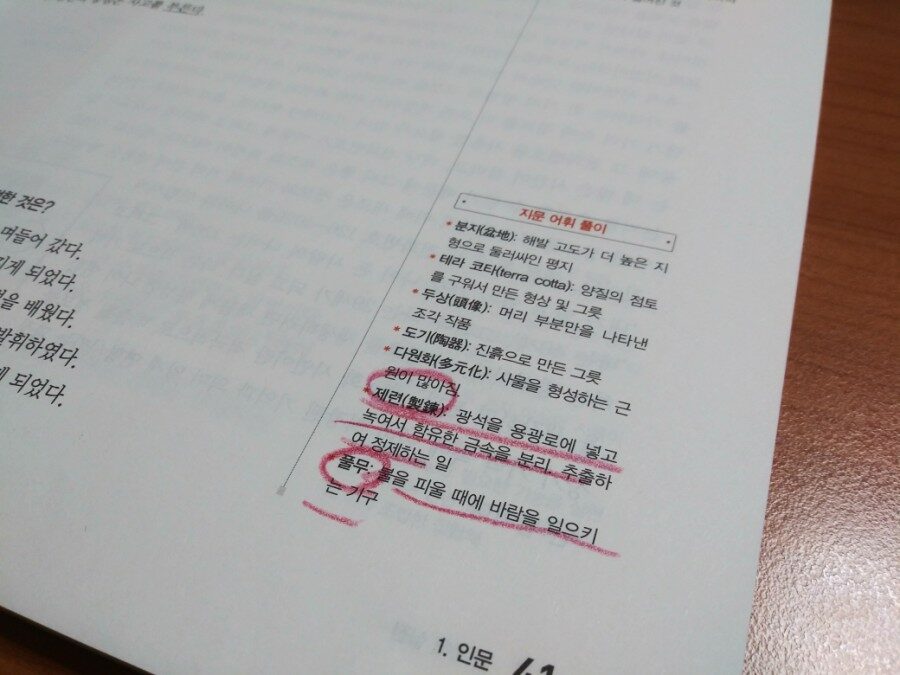 한 것은?
며들어 갔다.
게 되었다.
을 배웠다.
발휘하였다.
게 되었다.
지문 어휘 풀이
* 분지(盆地): 해발 고도가 더 높은 지
형으로 둘러싸인 평지
* 테라 코타(terra cotta): 양질의 점토
를 구워서 만든 형상 및 그릇
* 두상(頭像): 머리 부분만을 나타낸
조각 작품
* 도기(陶器): 진흙으로 만든 그릇
* 다원화(多元化): 사물을 형성하는 근
원이 많아짐
* 제련(製鍊): 광석을 용광로에 넣고
녹여서 함유한 금속을 분리, 추출하
여 정제하는 일
풀무: 불을 피울 때에 바람을 일으키
는 기구
1. 인문 41